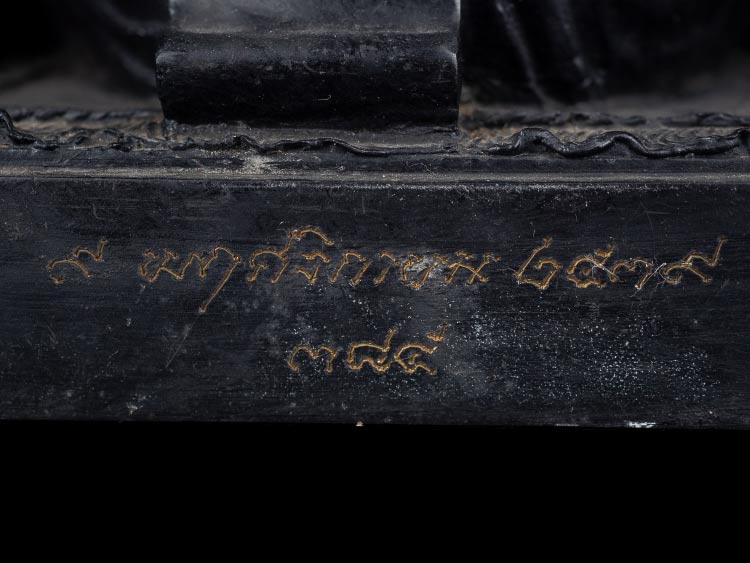 ๙ พฤศจิกายน ๒๕๓๙
๓๘๔